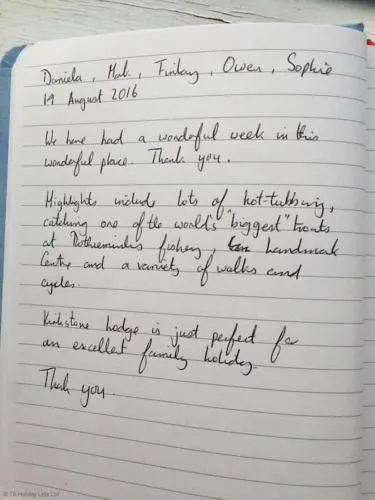 Daniela, Mark, Finlay, Owen, Sophie
19 August 2016
We have had a wonderful week in this
wonderful place. Thank you.
Highlights include lots of hot-tubbing,
catching one of the world's "biggest" trouts
at Rothiemurchus fishery, Landmark
Centre and a variety of walks and
cycles.
Kirkstone Lodge is just perfect for
an excellent family holiday.
Thank you.
© TB Holiday Lets Ltd